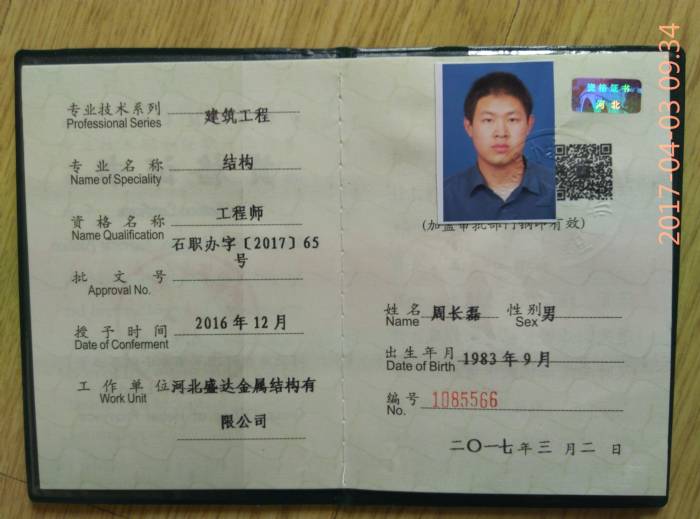 专业技术系列 建筑工程
Professional Series
专业名称 结构
Name of Speciality
资格名称 工程师
Name Qualification
石职办字〔2017〕65
号
批文号
Approval No.
授予时间 2016年12月
Date of Conferment
工作单位 河北盛达金属结构有
Work Unit
限公司
资格证书
河北
(加盖审批部门钢印有效)
姓名 周长磊 性别 男
Name Sex
出生年月 1983年9月
Date of Birth
编号 1085566
No.
二〇一七年三月二日
2017-04-03 09:34